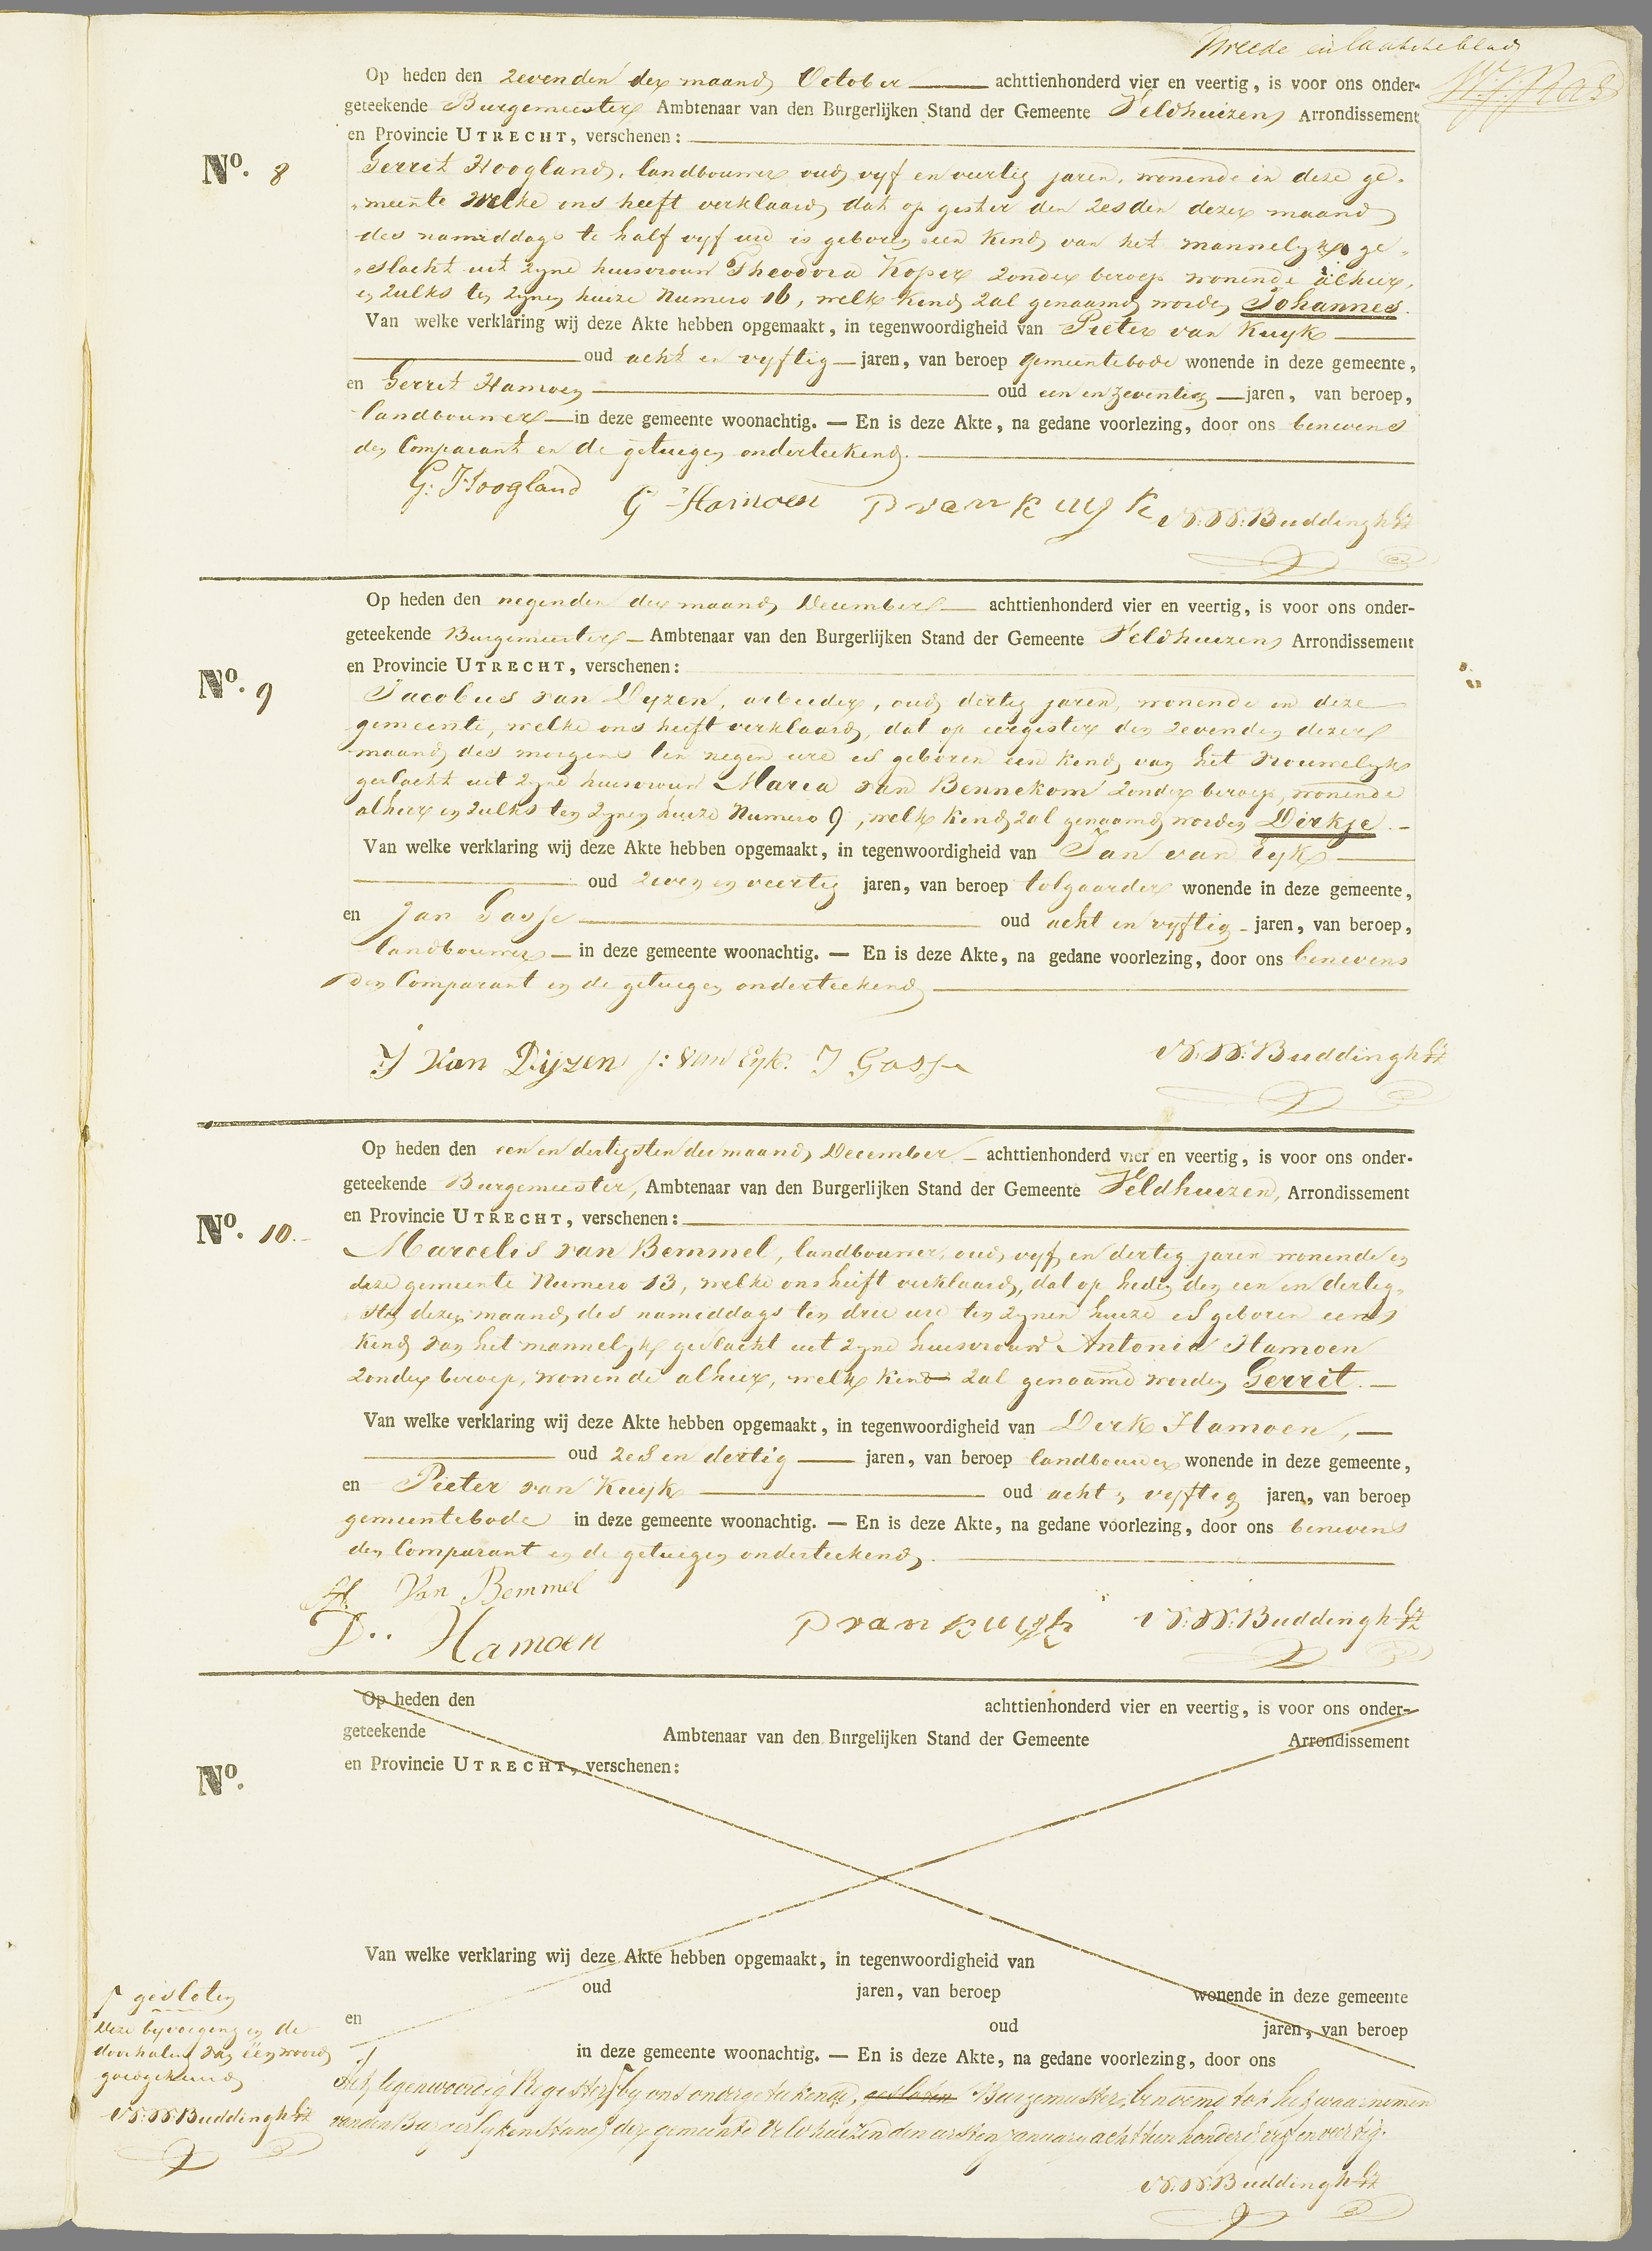 Tweede en laatste blad
Op heden den zevenden der maand October achttienhonderd vier en veertig, is voor ons onder-
geteekende Burgemeester Ambtenaar van den Burgerlijken Stand der Gemeente Veldhuizen Arrondissement
en Provincie UTRECHT, verschenen:
No. 8
Gerrit Hoogland, landbouwer oud vyf en veertig jaren, wonende in deze ge-
meente welke ons heeft verklaard dat op gister den zesden dezer maand
des namiddags te half vyf ure is geboren een kind van het mannelyk ge-
slacht uit zyne huisvrouw Theodora Koper zonder beroep wonende alhier,
en zulks ten zynen huize Numero 16, welk kind zal genaamd worden Johannes.
Van welke verklaring wij deze Akte hebben opgemaakt, in tegenwoordigheid van Pieter van Kuyk
oud acht en vyftig jaren, van beroep gemeentebode wonende in deze gemeente,
en Gerrit Hamoen oud een en zeventig jaren, van beroep,
landbouwer in deze gemeente woonachtig. — En is deze Akte, na gedane voorlezing, door ons benevens
den Comparant en de getuigen onderteekend.
G: Hoogland G Hamoen P van Kuyk N.W. Buddingh Gz
Op heden den negenden der maand December achttienhonderd vier en veertig, is voor ons onder-
geteekende Burgemeester Ambtenaar van den Burgerlijken Stand der Gemeente Veldhuizen Arrondissement
en Provincie UTRECHT, verschenen:
No. 9
Jacobus van Dyzen, arbeider, oud dertig jaren, wonende in deze
gemeente, welke ons heeft verklaard, dat op eergister den zevenden dezer
maand des morgens ten negen ure is geboren een kind van het vrouwelyk
geslacht uit zyne huisvrouw Maria van Bennekom zonder beroep, wonende
alhier en zulks ten zynen huize Numero 9, welk kind zal genaamd worden Dirkje.
Van welke verklaring wij deze Akte hebben opgemaakt, in tegenwoordigheid van Jan van Eyk
oud zeven en veertig jaren, van beroep tolgaarder wonende in deze gemeente,
en Jan Gasse oud acht en vyftig jaren, van beroep,
landbouwer in deze gemeente woonachtig. — En is deze Akte, na gedane voorlezing, door ons benevens
den Comparant en de getuigen onderteekend
J Van Dijzen J: van Eyk. J Gasse N.W. Buddingh Gz
Op heden den een en dertigsten der maand December achttienhonderd vier en veertig, is voor ons onder-
geteekende Burgemeester, Ambtenaar van den Burgerlijken Stand der Gemeente Veldhuizen, Arrondissement
en Provincie UTRECHT, verschenen:
No. 10.
Marcelis van Bemmel, landbouwer, oud vyf en dertig jaren wonende in
deze gemeente Numero 13, welke ons heeft verklaard, dat op heden den een en dertig-
sten dezer maand des namiddags ten drie ure ten zynen huize is geboren een
kind van het mannelyk geslacht uit zyne huisvrouw Antonia Hamoen
zonder beroep, wonende alhier, welk kind zal genaamd worden Gerrit.
Van welke verklaring wij deze Akte hebben opgemaakt, in tegenwoordigheid van Dirk Hamoen,
oud zes en dertig jaren, van beroep landbouwer wonende in deze gemeente,
en Pieter van Kuyk oud acht en vyftig jaren, van beroep
gemeentebode in deze gemeente woonachtig. — En is deze Akte, na gedane voorlezing, door ons benevens
den Comparant en de getuigen onderteekend.
Van Bemmel
D.. Hamoen P van Kuyk N.W. Buddingh Gz
Op heden den achttienhonderd vier en veertig, is voor ons onder-
geteekende Ambtenaar van den Burgelijken Stand der Gemeente Arrondissement
en Provincie UTRECHT, verschenen:
No.
Van welke verklaring wij deze Akte hebben opgemaakt, in tegenwoordigheid van
oud jaren, van beroep wonende in deze gemeente
en oud jaren, van beroep
in deze gemeente woonachtig. — En is deze Akte, na gedane voorlezing, door ons
gesloten
deze byvoeging en de
doorhaling van één woord
goedgekeurd
N.W. Buddingh Gz
Het tegenwoordig Register by ons ondergeteekende, gesloten Burgemeester, benoemd tot het waarnemen
van den Burgerlyken Stand der gemeente Veldhuizen den eersten January achttien honderd vyf en veertig.
N.W. Buddingh Gz